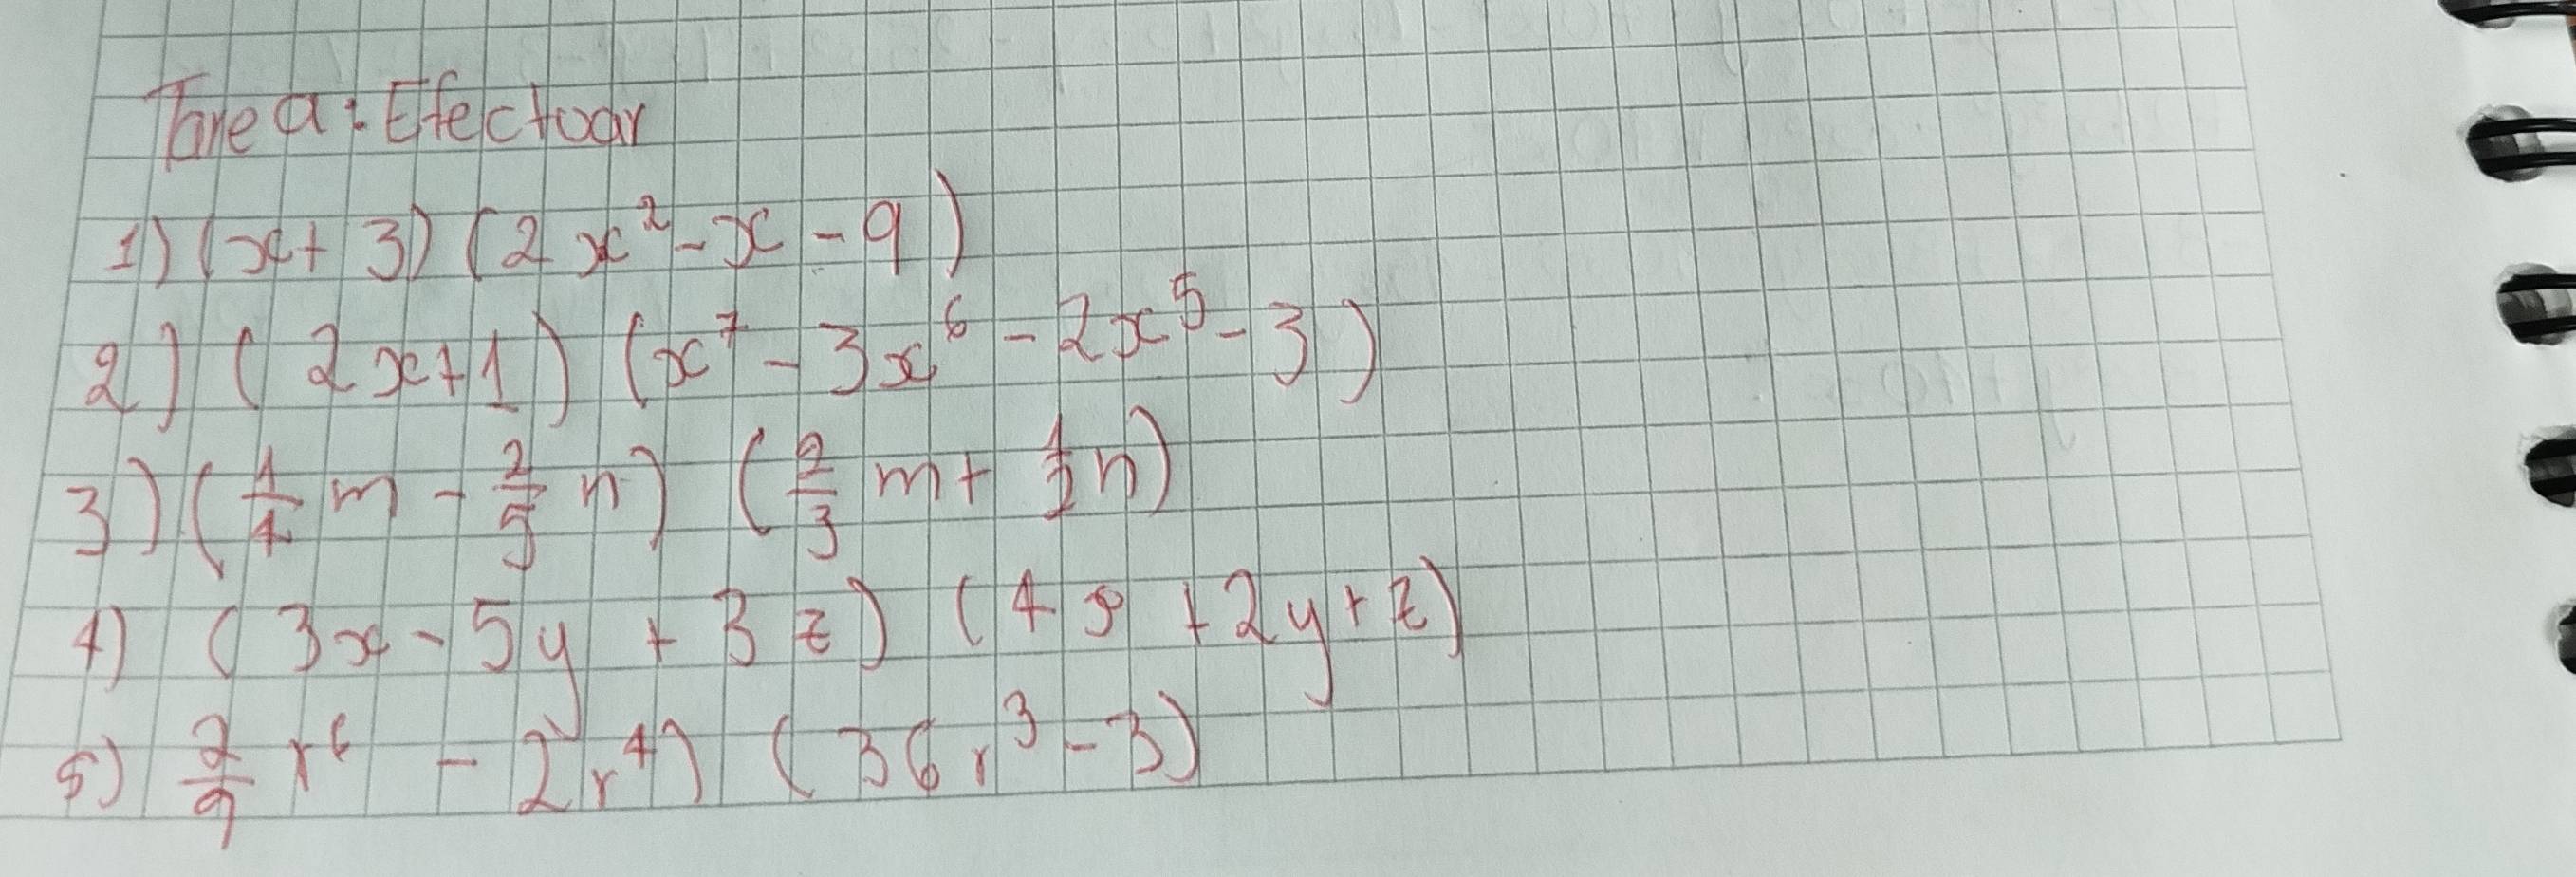 Tarea: Efectuar
1) (x+3) (2x²-x-9)
2) (2x+1) (x⁷-3x⁶-2x⁵-3)
3) (1/4 m - 2/5 n) (2/3 m + 1/2 n)
4) (3x-5y+3z) (4x+2y+z)
5) 2/9 r⁶ - 2r⁴) (36r³-3)